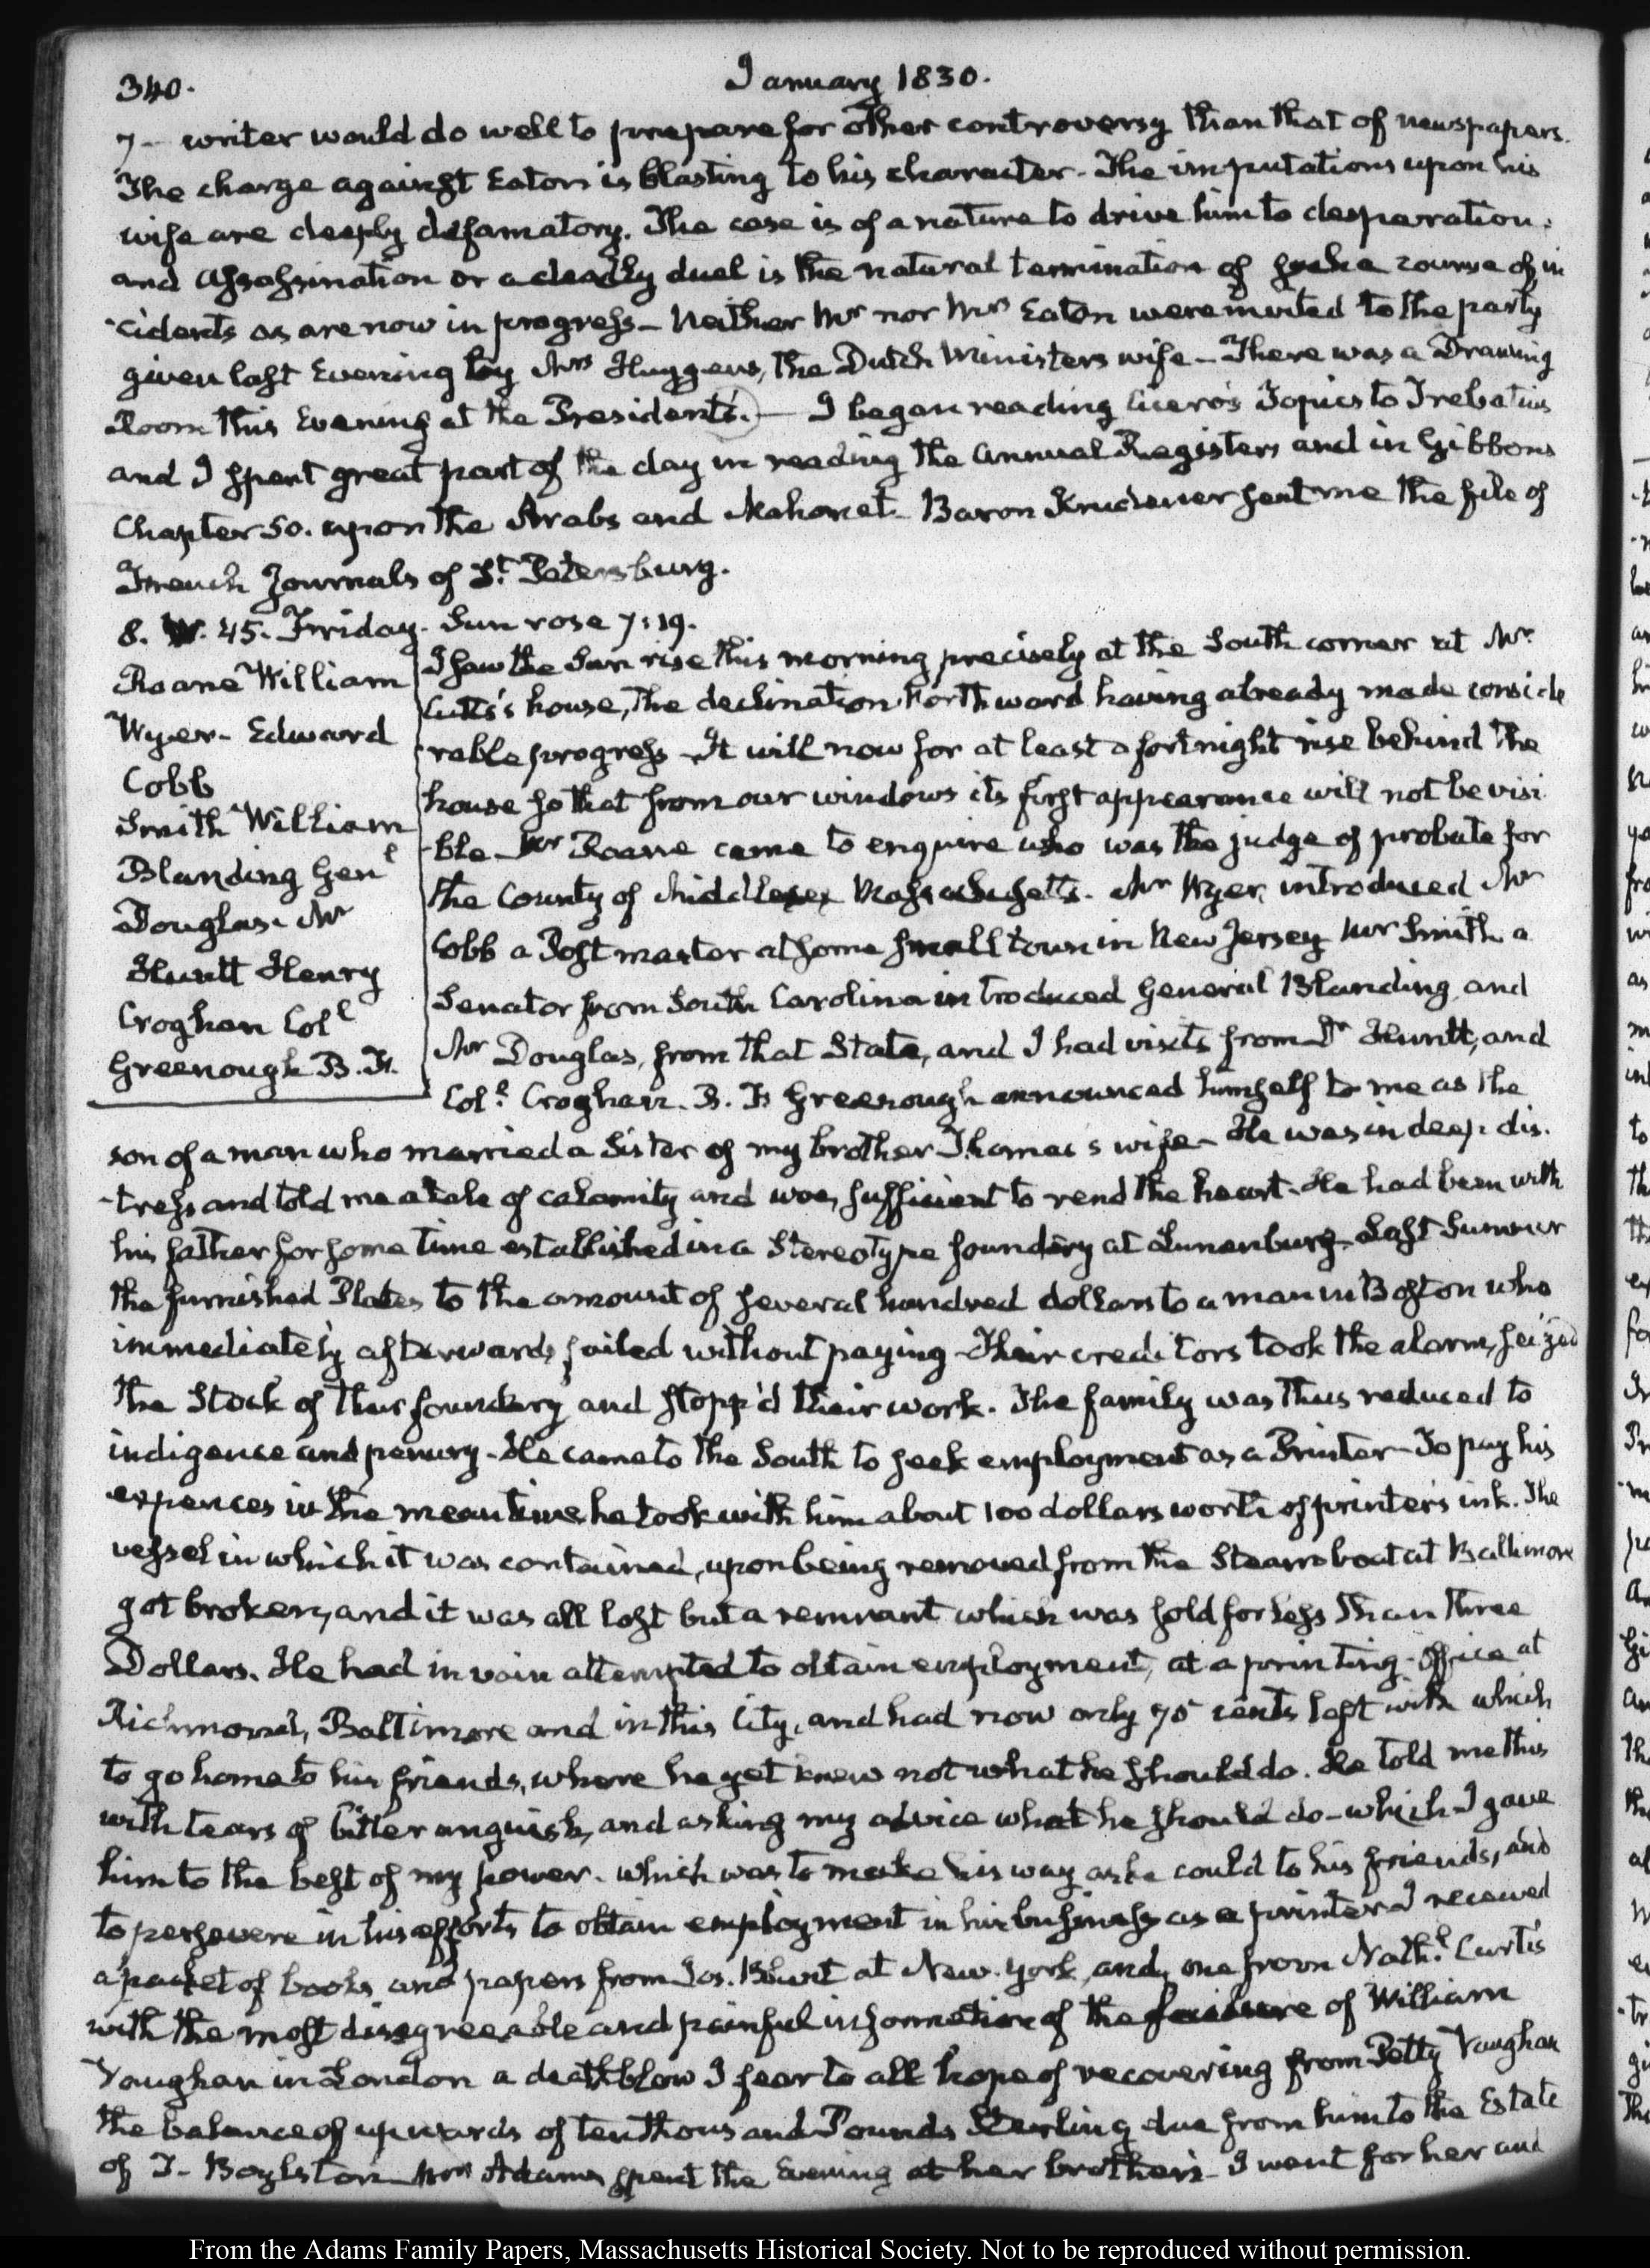 340.
January 1830.
7- writer would do well to prepare for other controversy than that of newspapers.
The charge against Eaton is blasting to his character - The imputations upon his
wife are deeply defamatory. The case is of a nature to drive him to desperation:
and assassination or a deadly duel is the natural termination of such a course of in
-cidents as are now in progress - Neither Mr nor Mrs Eaton were invited to the party
given last Evening by Mrs Huygens, the Dutch Ministers wife - There was a Drawing
Room this Evening at the President's. - I began reading Cicero's Topics to Trebatius
and I spent great part of the day in reading the Annual Registers and in Gibbons
Chapter 50. upon the Arabs and Mahomet. Baron Krudener sent me the file of
French Journals of St Petersburg.
8. 45. Friday. Sun rose 7:19.
Roane William
Wyer - Edward
Cobb
Smith William
Blanding Genl
Douglas - Mr
Huntt Henry
Croghan Coll
Greenough B. F.
I saw the Sun rise this morning precisely at the South corner at Mr
Cutts's house, the declination Northward having already made conside
rable progress - It will now for at least a fortnight rise behind the
house so that from our windows its first appearance will not be visi
-ble - Mr Roane came to enquire who was the judge of probate for
the County of Middlesex Massachusetts. Mr Wyer, introduced Mr
Cobb a Postmaster at some small town in New Jersey Mr Smith a
Senator from South Carolina introduced General Blanding and
Mr Douglas, from that State, and I had visits from Dr Huntt, and
Coll Croghan. B. F. Greenough announced himself to me as the
son of a man who married a Sister of my brother Thomas's wife - He was in deep dis.
-tress and told me a tale of calamity and woe, sufficient to rend the heart. He had been with
his father for some time established in a Stereotype foundery at Lunenburg - Last Summer
the furnished Plates to the amount of several hundred dollars to a man in Boston who
immediately afterwards failed without paying - Their creditors took the alarm, seized
the Stock of their foundery and stopp'd their work. The family was thus reduced to
indigence and penury - He came to the South to seek employment as a Printer - To pay his
expences in the mean time he took with him about 100 dollars worth of printer's ink. The
vessel in which it was contained, upon being removed from the Steam boat at Baltimore
got broken, and it was all lost but a remnant which was sold for less than three
Dollars. He had in vain attempted to obtain employment, at a printing-office at
Richmond, Baltimore and in this City, and had now only 75 cents left with which
to go home to his friends, where he yet knew not what he should do. He told me this
with tears of bitter anguish, and asking my advice what he should do - which I gave
him to the best of my power. which was to make his way as he could to his friends, and
to persevere in his efforts to obtain employment in his business as a printer - I received
a packet of books and papers from Jos. Blunt at New York, and one from Nathl. Curtis
with the most disagreeable and painful information of the failure of William
Vaughan in London a death blow I fear to all hope of recovering from Petty Vaughan
the balance of upwards of ten thousand Pounds Sterling due from him to the Estate
of T- Boylston - Mrs Adams spent the Evening at her brother's - I went for her and
From the Adams Family Papers, Massachusetts Historical Society. Not to be reproduced without permission.